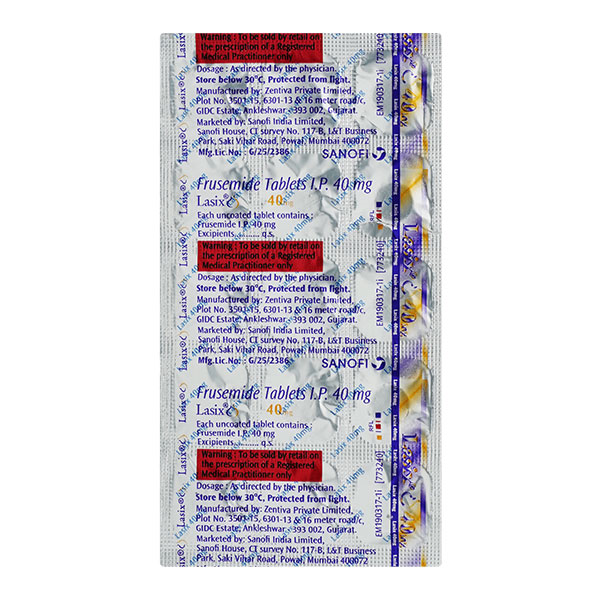 Warning : To be sold by retail on
the prescription of a Registered
Medical Practitioner only
Dosage : As directed by the physician.
Store below 30°C, Protected from light.
Manufactured by: Zentiva Private Limited,
Plot No. 3503-15, 6301-13 & 16 meter road/c,
GIDC Estate, Ankleshwar, 393 002, Gujarat.
Marketed by: Sanofi India Limited,
Sanofi House, CT survey No. 117-B, L&T Business
Park, Saki Vihar Road, Powai, Mumbai 400072
Mfg.Lic.No.: G/25/2386
SANOFI
Frusemide Tablets I.P. 40 mg
Lasix®
40mg
Each uncoated tablet contains :
Frusemide I.P. 40 mg
Excipients......... q.s.
RFL
Warning : To be sold by retail on
the prescription of a Registered
Medical Practitioner only
Dosage : As directed by the physician.
Store below 30°C, Protected from light.
Manufactured by: Zentiva Private Limited,
Plot No. 3503-15, 6301-13 & 16 meter road/c,
GIDC Estate, Ankleshwar, 393 002, Gujarat.
Marketed by: Sanofi India Limited,
Sanofi House, CT survey No. 117-B, L&T Business
Park, Saki Vihar Road, Powai, Mumbai 400072
Mfg.Lic.No.: G/25/2386
SANOFI
Frusemide Tablets I.P. 40 mg
Lasix®
40mg
Each uncoated tablet contains :
Frusemide I.P. 40 mg
Excipients......... q.s.
RFL
Warning : To be sold by retail on
the prescription of a Registered
Medical Practitioner only
Dosage : As directed by the physician.
Store below 30°C, Protected from light.
Manufactured by: Zentiva Private Limited,
Plot No. 3503-15, 6301-13 & 16 meter road/c,
GIDC Estate, Ankleshwar, 393 002, Gujarat.
Marketed by: Sanofi India Limited,
Sanofi House, CT survey No. 117-B, L&T Business
Park, Saki Vihar Road, Powai, Mumbai 400072
EM190317-1i [773240]
EM190317-1i [773240]
EM190317-1i [773240]
Lasix 40mg